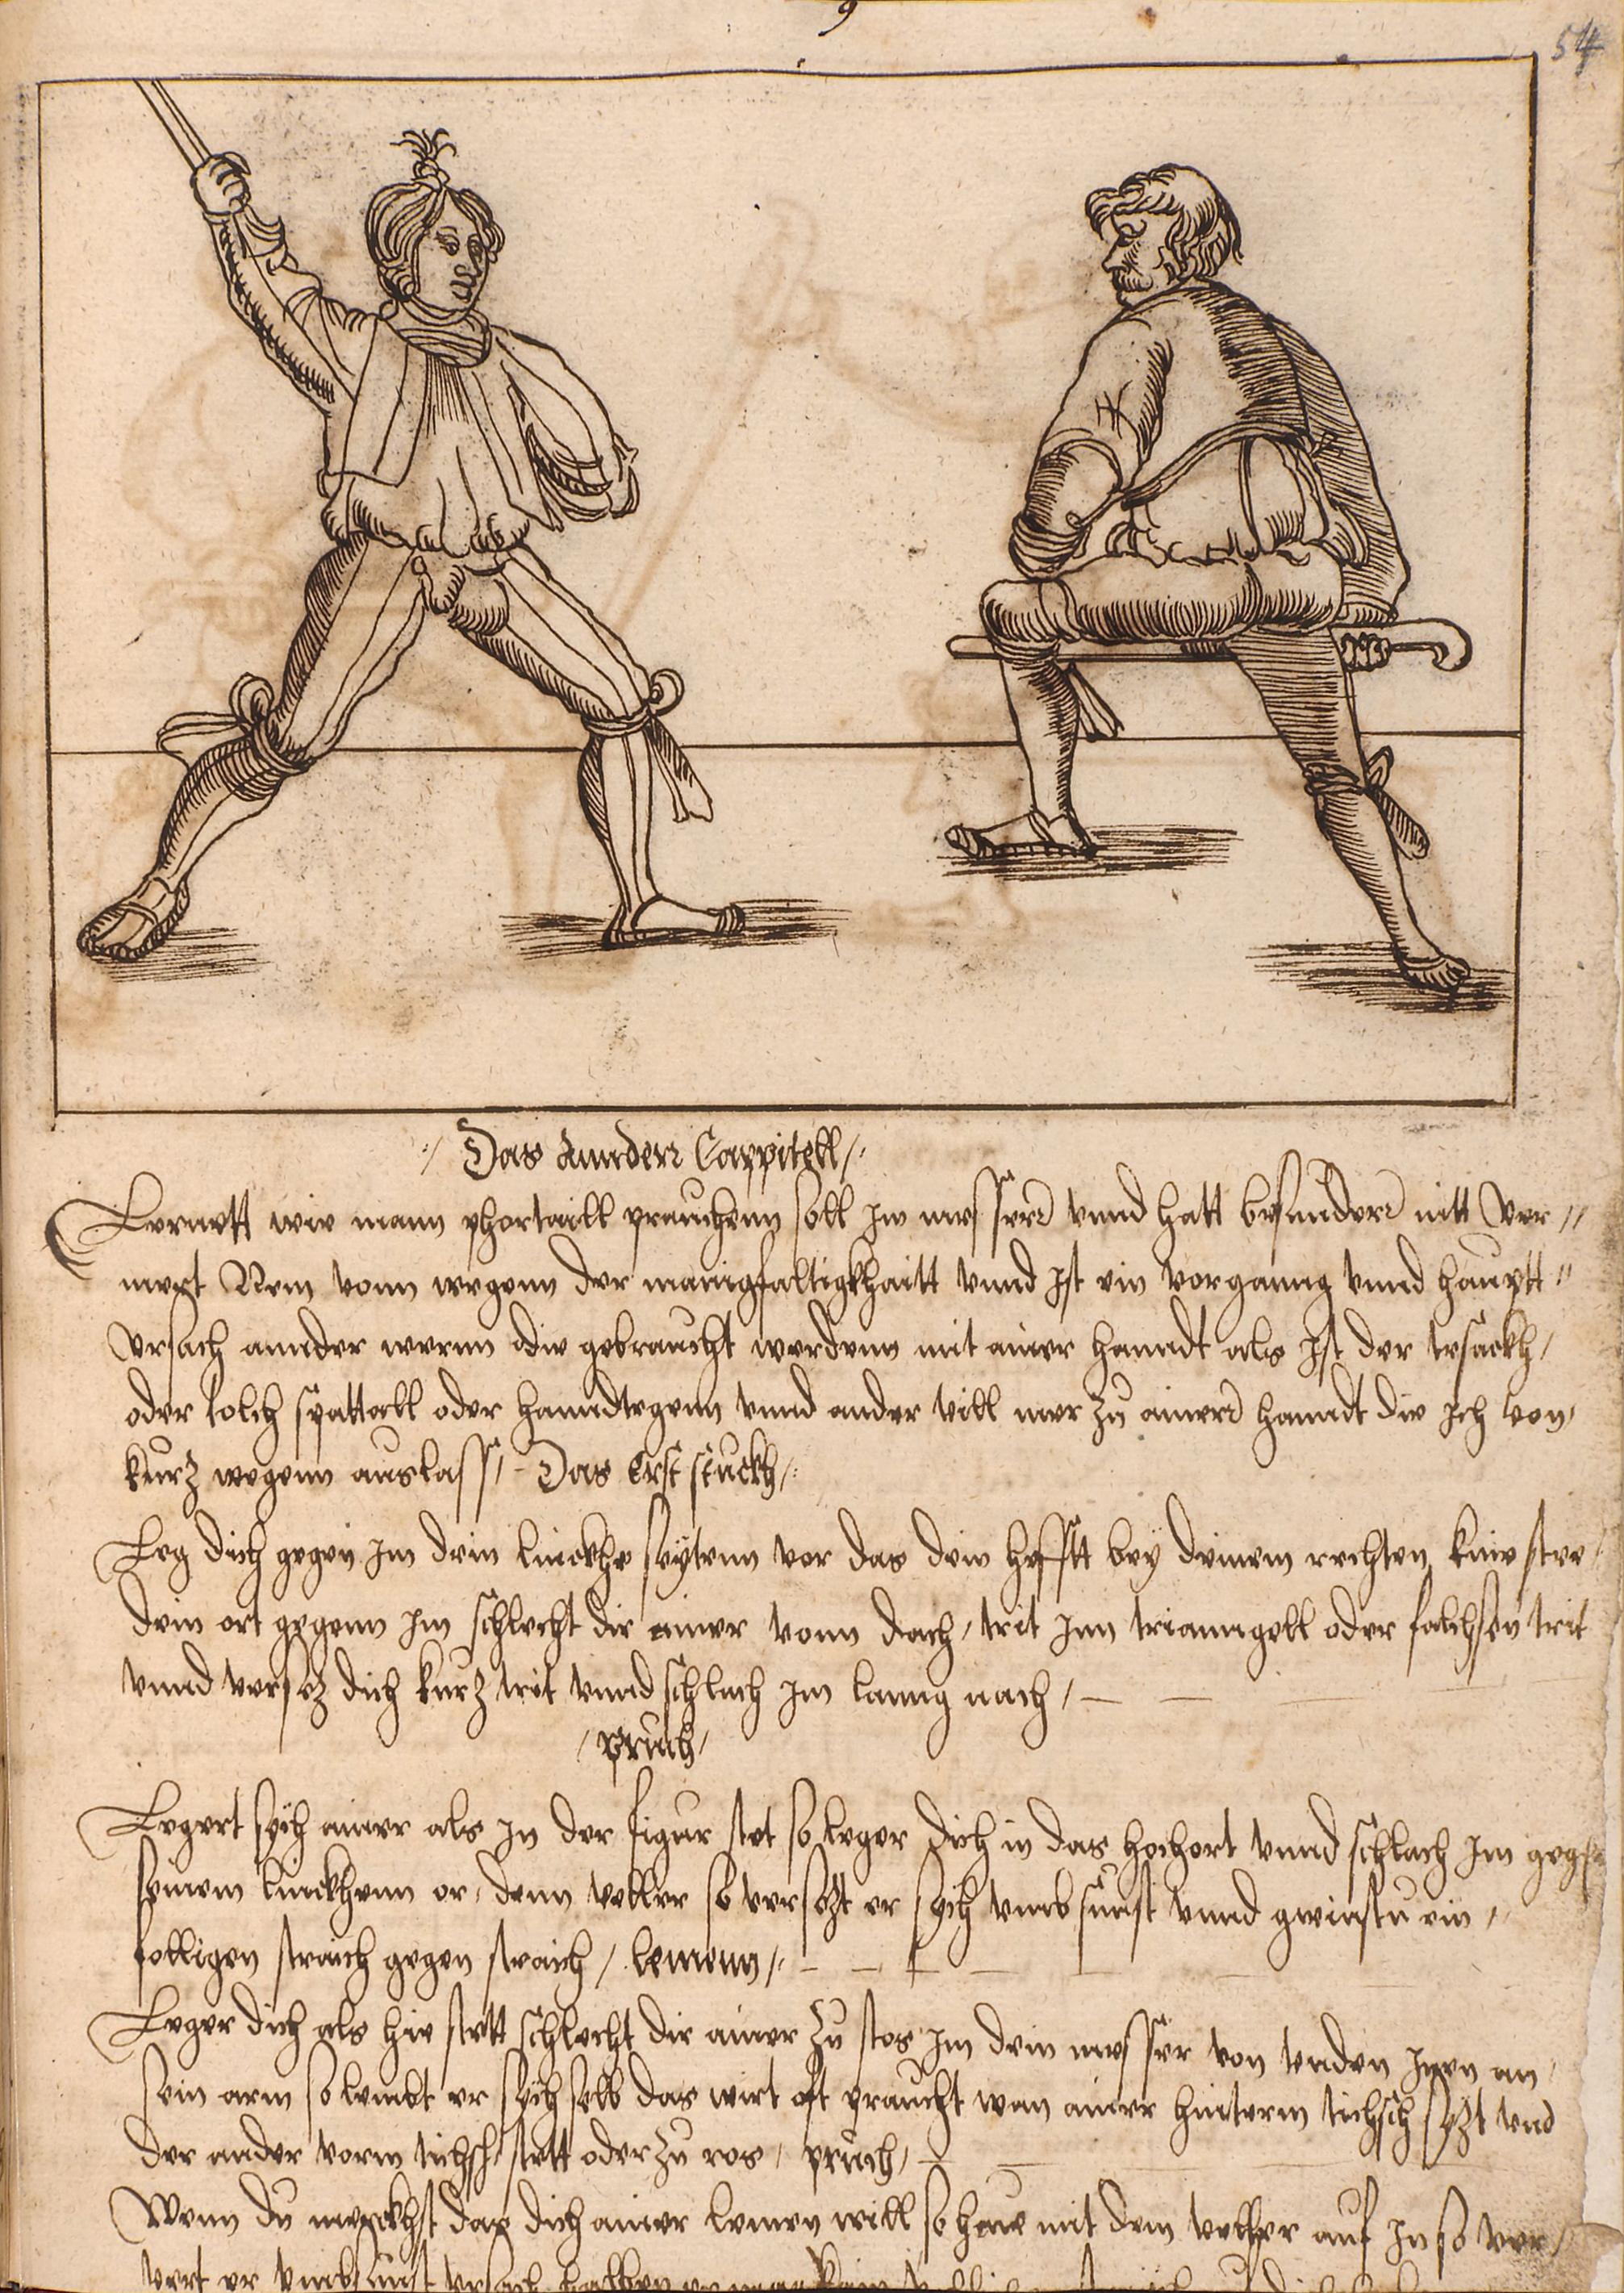 9
54
Das Annder Cappitell
Lernett wie mann phortaill prauchenn soll Im messerr vnnd hatt besunderr nitt ver
mert Nem vonn wegenn der manigfaltigkhaitt vnnd Ist ein vorganng vnnd hauptt
vrsach annder weren die gebraucht werdenn mit ainer hanndt als Ist der tesackh
oder dolch spattall oder hanndtegenn vnnd ander vill mer zu ainerr hanndt die Ich von
kurz wegenn auslass Das Erst stuckh
Leg dich gegen Im dein linckhe seytenn vor das dein hefftt bey deinem rechten knie stee
dein ort gegenn Im schlecht dir ainer vonn dach / trit Inn trianngell oder falchsen trit
vnnd versez dich kurz trit vnnd schlach Im lanng nach
pruch
Legert sych ainer als In der figur stet so leger dich in das hochort vnnd schlach Im gegen
seinem linckhenn or denn veller so versezt er sych vmb sunst vnnd gwinstu ein
folligen straich gegen straich / lemenn
Leger dich als hie stett schlecht dir ainer zu stos Im dein messer von vnden Inen an
sein arm so lembt er sych selb das wirt oft praucht wan ainer hinterm tichsch sizt vnd
der ander vorm tichsch stett oder zu ros / pruch
Wenn du merckhst das dich ainer lemen will so haw mit dem veller auf In so ver
vert er vmb sunst vrsach halben